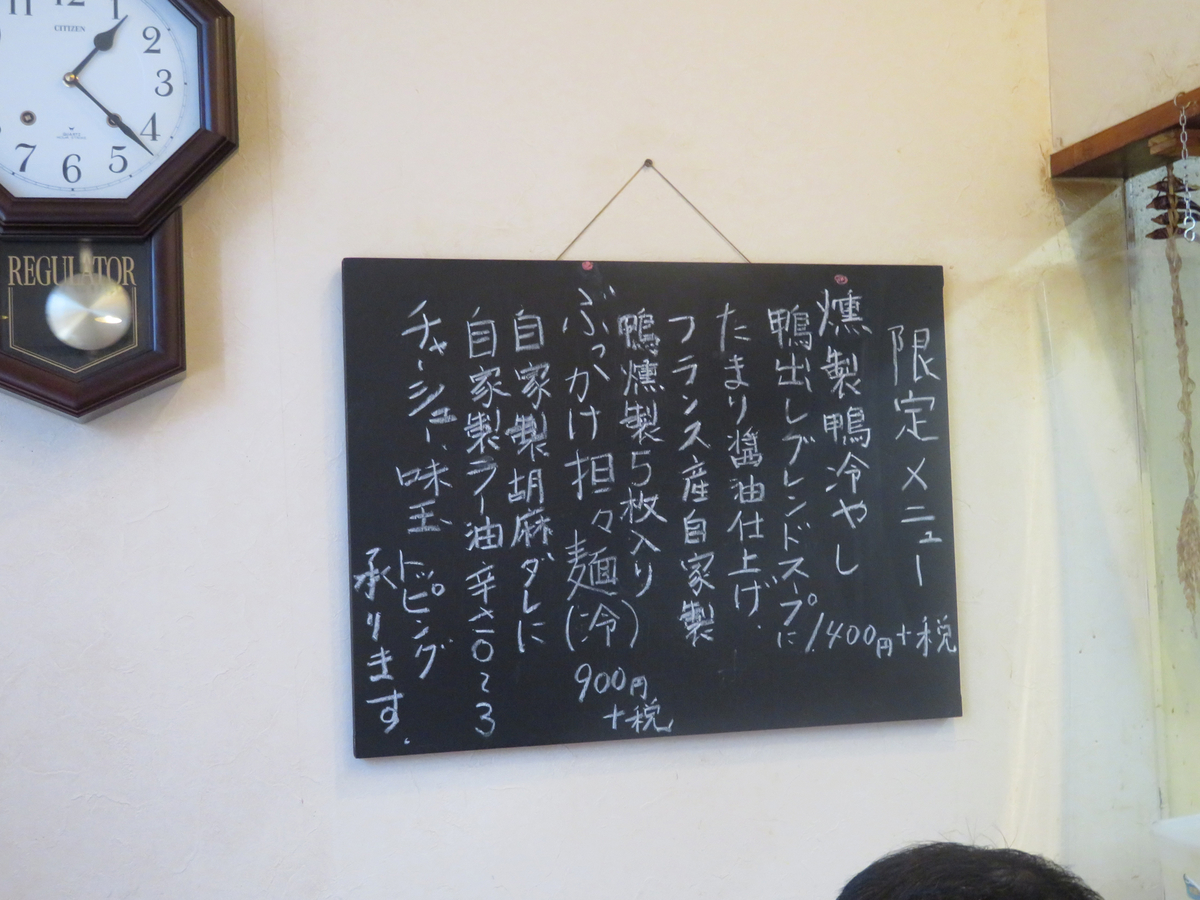 11
12
1
2
3
4
5
6
7
CITIZEN
REGULATOR
限定メニュー
燻製鴨冷やし
1,400円+税
鴨出しブレンドスープに
たまり醤油仕上げ.
フランス産自家製
鴨燻製5枚入り
ぶっかけ担々麺(冷)
900円
+税
自家製胡麻ダレに
自家製ラー油辛さ0〜3
チャーシュー、味玉
トッピング
承ります.